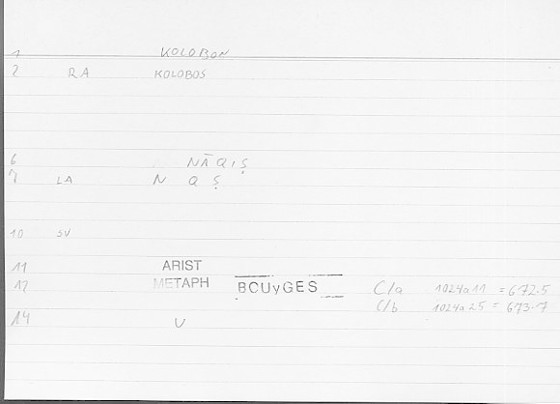 1 KOLOBON
2 RA KOLOBOS
6 NĀQIṢ
7 LA N Q Ṣ
10 SV
11 ARIST
12 METAPH BOUYGES C/a 1024a11 = 672.5
C/b 1024a25 = 673.7
14 U